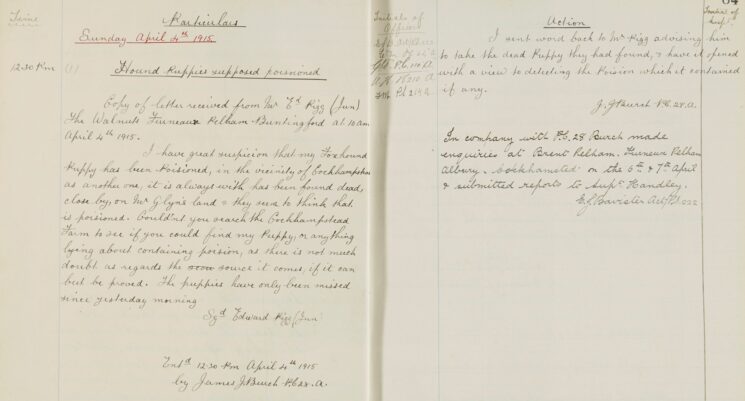 Time
Particulars
Sunday April 4th 1915
12.30 Pm
(1)
Hound Puppies supposed poisioned
Copy of letter received from Mr Ed Rigg (Jun)
The Walnuts Furneaux Pelham Buntingford at 10 am
April 4th 1915.
I have great suspicion that my Foxhound
Puppy has been Poisioned, in the vicinity of Cockhampstead
as another one, it is always with has been found dead,
close by, on Mr Glyn's land & they seem to think that
is poisioned. Could'nt you search the Cockhampstead
Farm to see if you could find my Puppy, or anything
lying about containing poision, as there is not much
doubt as regards the source it comes, if it can
but be proved. The puppies have only been missed
since yesterday morning
Sgd Edward Rigg (Jun)
Entd 12.30 Pm April 4th 1915
by James J Burch P.C. 28. A.
Initials of
Officers
Action
Initial of
Supt.
I sent word back to Mr Rigg advising him
to take the dead Puppy they had found, & have it opened
with a view to detecting the Poision which it contained
if any.
J. J Burch P.C. 28. A.
In company with P.C. 28 Burch made
enquiries at Brent Pelham. Furneux Pelham
Albury. Cockhamsted on the 6th & 7th April
& submitted reports to Supt Handley.